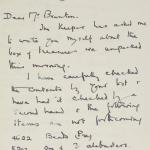 Dear Mr Brunton.
The Keeper has asked me
to write you myself about the
box of treasures we unpacked
this morning.
I have carefully checked
the contents by your list &
have had it checked by a
second hand & the following
items are not forthcoming
4602 Beads Bag